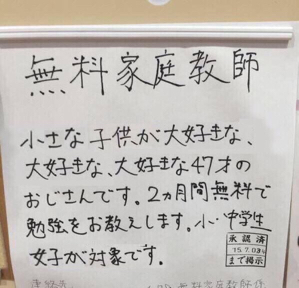 無料家庭教師
小さな子供が大好きな、
大好きな、大好きな47才の
おじさんです。2ヵ月間無料で
勉強をお教えします。小・中学生
女子が対象です。
承認済
15.7.03
まで掲示
連絡先
無料家庭教師係